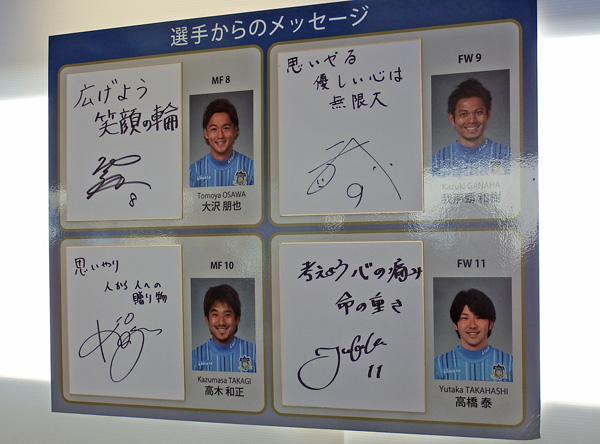 選手からのメッセージ
広げよう
笑顔の輪
8
MF 8
Tomoya OSAWA
大沢 朋也
思いやる
優しい心は
無限大
9
FW 9
Kazuki GANAHA
我那覇 和樹
思いやり
人から人への
贈り物
10
MF 10
Kazumasa TAKAGI
高木 和正
考えよう 心の痛み
命の重さ
11
FW 11
Yutaka TAKAHASHI
高橋 泰